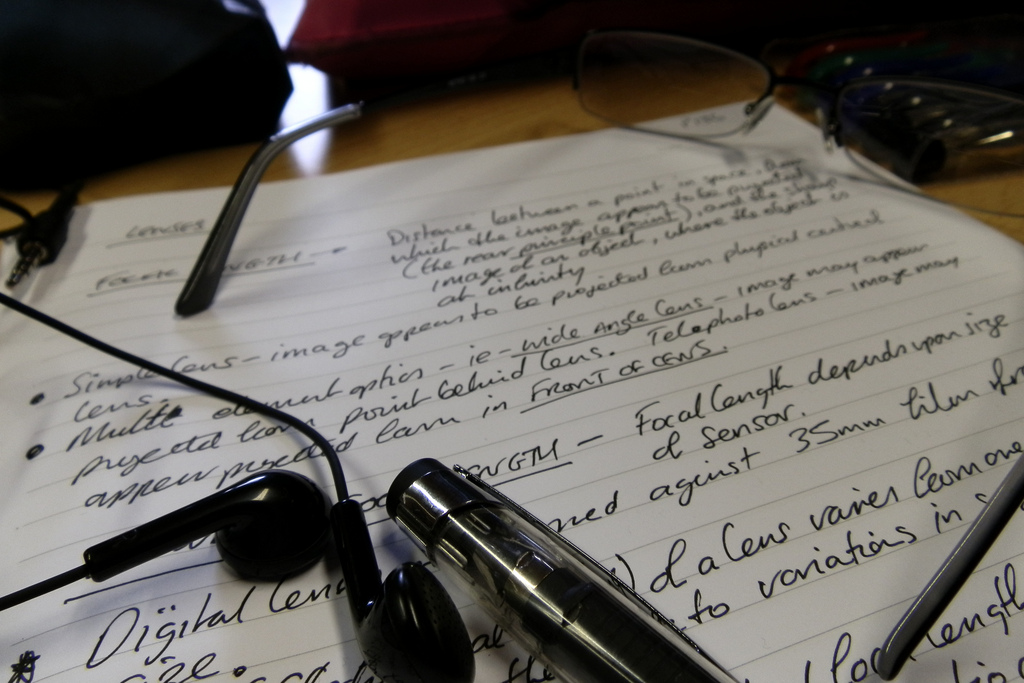 LENSES
Distance between a point in space, from
which the image appears to be projected
(the rear principle point), and the sharp
image of an object, where the object is
at infinity
Simple lens - image appears to be projected from physical centre of
lens.
Multi element optics - ie - wide Angle lens - image may appear
projected from point behind lens. Telephoto lens - image may
appear projected from in FRONT OF LENS.
Focal length depends upon size
of sensor.
against 35mm film
of a lens varies from one
Digital
to variations in
size.
length